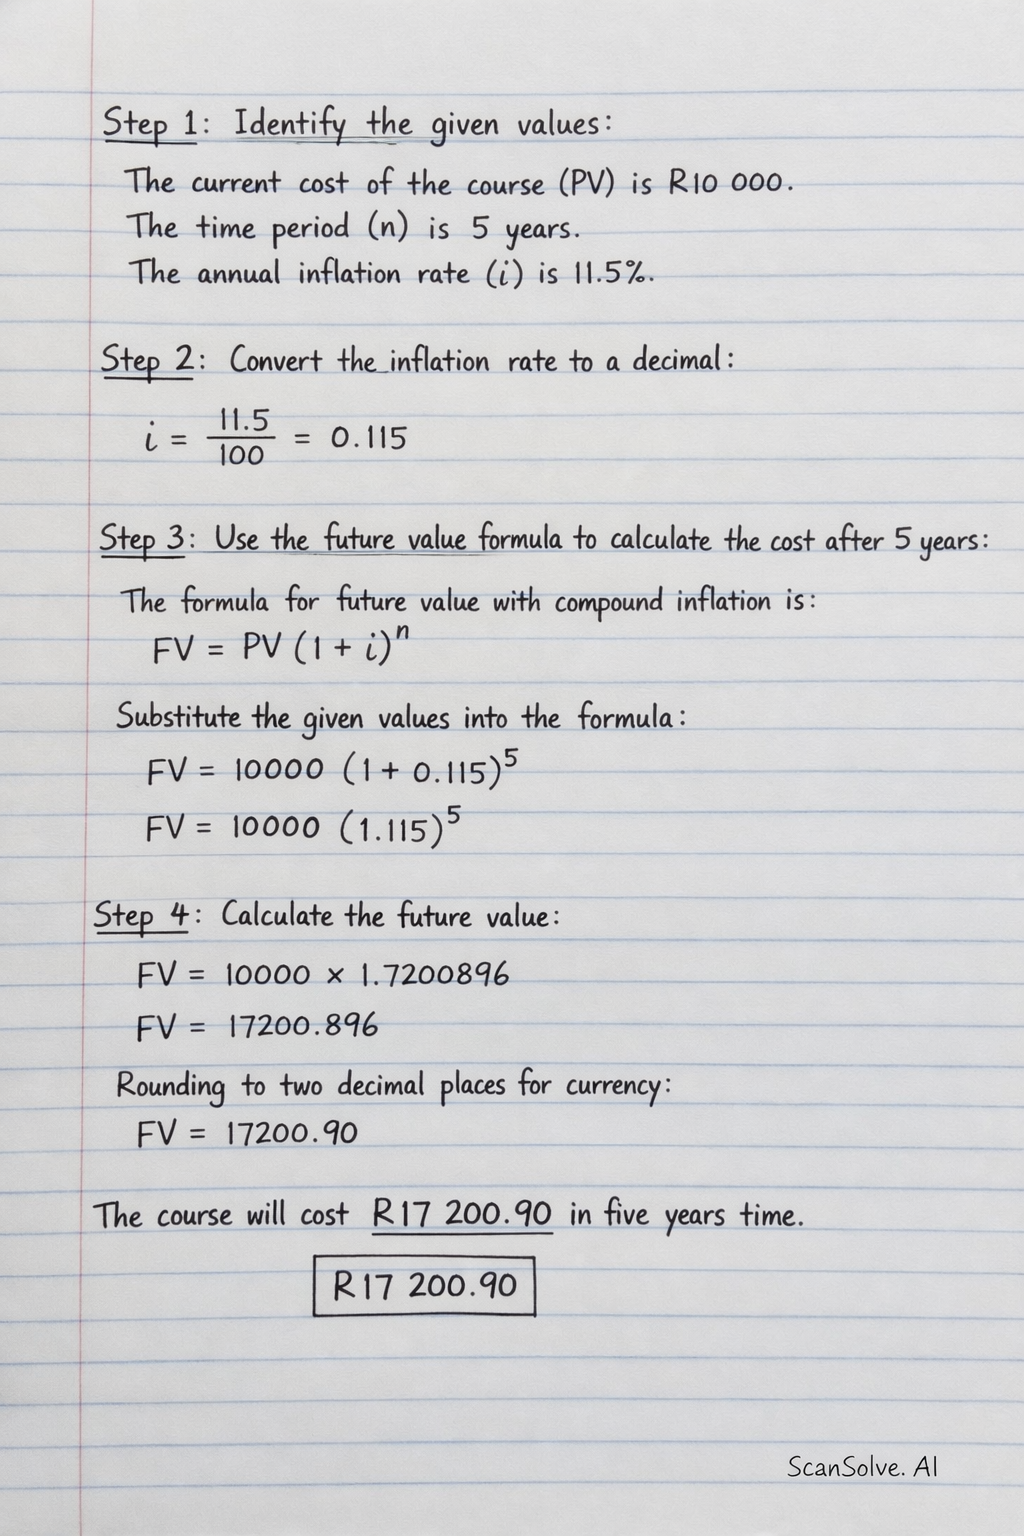 Step 1: Identify the given values:
The current cost of the course (PV) is R10 000.
The time period (n) is 5 years.
The annual inflation rate (i) is 11.5%.
Step 2: Convert the inflation rate to a decimal:
i = 11.5/100 = 0.115
Step 3: Use the future value formula to calculate the cost after 5 years:
The formula for future value with compound inflation is:
FV = PV (1 + i)^n
Substitute the given values into the formula:
FV = 10000 (1 + 0.115)^5
FV = 10000 (1.115)^5
Step 4: Calculate the future value:
FV = 10000 × 1.7200896
FV = 17200.896
Rounding to two decimal places for currency:
FV = 17200.90
The course will cost R17 200.90 in five years time.
R17 200.90
ScanSolve. AI